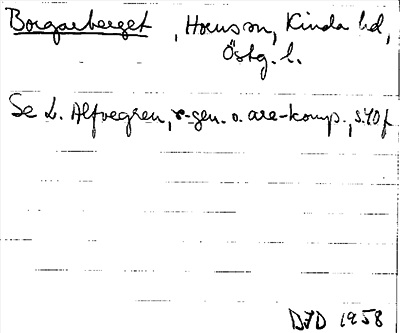 Borgarberget, Hornsson, Kinda hd,
Östg. l.
Se L. Alfvegren, r-gen. o. are-komp., s. 40 f
DFD 1958